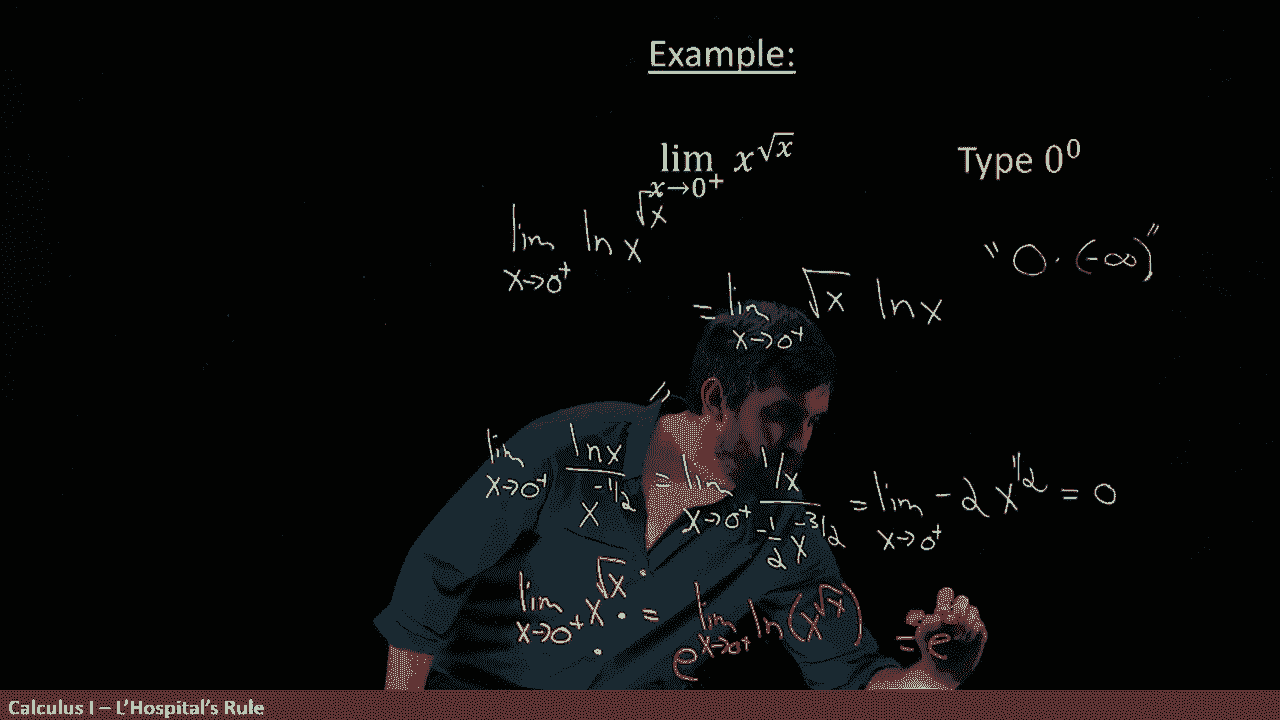 Example:
lim x→0⁺ x^√x Type 0⁰
lim x→0⁺ ln x^√x " 0 · (-∞) "
= lim x→0⁺ √x ln x
=
lim x→0⁺ ln x / x^(-1/2) = lim x→0⁺ (1/x) / (-1/2 x^(-3/2)) = lim x→0⁺ -2 x^(1/2) = 0
lim x→0⁺ x^√x = e^(lim x→0⁺ ln(x^√x)) = e
Calculus I – L'Hospital's Rule